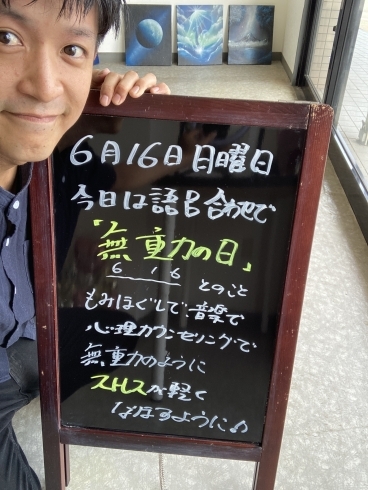 6月16日日曜日
今日は語呂合わせで
「無重力の日」
6 16
とのこと
もみほぐしで・音楽で
心理カウンセリングで
無重力のように
ストレスが軽く
なりますように♪